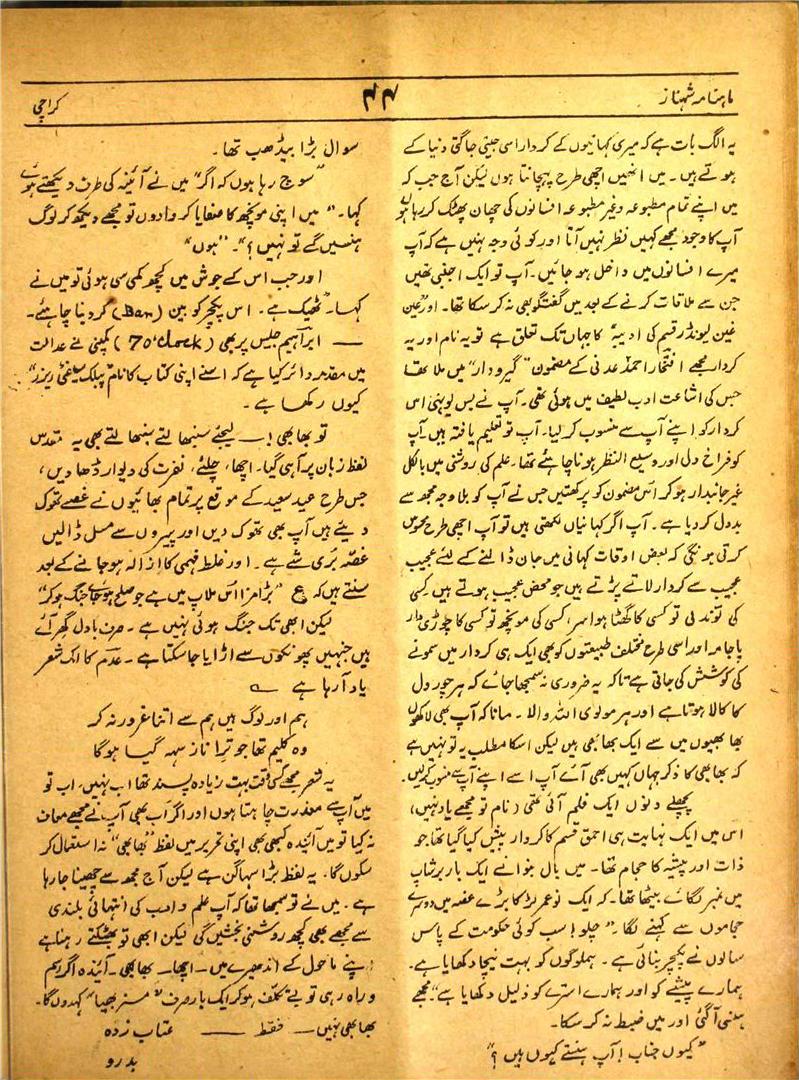 ماہنامہ شہناز
۴۴
کراچی
یہ الگ بات ہے کہ میری کہانیوں کے کردار اسی جیتی جاگتی دنیا کے
ہوتے ہیں۔ میں انھیں اچھی طرح پہچانتا ہوں لیکن آج جب کہ
میں اپنے تمام مطبوعہ وغیر مطبوعہ افسانوں کی چھان پھٹک کر رہا ہوں
آپ کا وجود مجھے کہیں نظر نہیں آتا اور کوئی وجہ نہیں ہے کہ آپ
میرے افسانوں میں داخل ہو جائیں۔ آپ تو ایک اجنبی تھیں
جن سے ملاقات کرنے کے بعد میں گفتگو بھی نہ کر سکا تھا۔ اور عین
غین لیونڈر قسم کی ادیبہ کا جہاں تک تعلق ہے تو یہ نام اور یہ
کردار مجھے افتخار احمد عدنی کے مضمون "گیرو دار" میں ملا تھا
جس کی اشاعت ادب لطیف میں ہوئی تھی۔ آپ نے بس یونہی اس
کردار کو اپنے آپ سے منسوب کر لیا۔ آپ تو تعلیم یافتہ ہیں۔ آپ
کو فراخ دل اور وسیع النظر ہونا چاہئے تھا۔ علم کی روشنی میں بالکل
غیر جانبدار ہو کر اس مضمون کو پرکھتیں جس نے آپ کو بلا وجہ مجھ سے
بددل کر دیا ہے۔ آپ اگر کہانیاں لکھتی ہیں تو آپ اچھی طرح محسوس
کرتی ہونگی کہ بعض اوقات کہانی میں جان ڈالنے کے لئے عجیب
عجیب سے کردار لانے پڑتے ہیں جو محض عجیب ہوتے ہیں کسی
کی توند لی تو کسی کا گھٹا ہوا سر، کسی کی مونچھ تو کسی کا چوڑی دار
پاجامہ اور اسی طرح مختلف طبیعتوں کو بھی ایک ہی کردار میں سمونے
کی کوشش کی جاتی ہے تاکہ یہ ضروری نہ سمجھا جائے کہ ہر چور دل
کا کالا ہوتا ہے اور ہر مولوی اللہ والا۔ مانا کہ آپ بھی لاکھوں
بھابھیوں میں سے ایک بھابھی ہیں لیکن اسکا مطلب یہ تو نہیں ہے
کہ بھابھی کا ذکر جہاں کہیں بھی آئے آپ اسے اپنے آپ سے منسوب کر لیں۔
پچھلے دنوں ایک فلم آئی تھی (نام تو مجھے یاد نہیں)
اس میں ایک نہایت ہی احمق قسم کا کردار پیش کیا گیا تھا جو
ذات اور پیشہ کا حجام تھا۔ میں بال بنوانے ایک باربر شاپ
میں نمبر لگائے بیٹھا تھا۔ کہ ایک نو عمر لڑکا بڑے غصہ میں دوسرے
حجاموں سے کہنے لگا۔ "چلو! سب کوئی حکومت کے پاس
سالوں نے پکچر بنائی ہے۔ ہملوگوں کو بہت نیچا دکھایا ہے۔
ہمارے پیشے کو اور ہمارے استرے کو ذلیل دکھایا ہے" مجھے
ہنسی آگئی اور میں ضبط نہ کر سکا۔
"کیوں جناب! آپ ہنستے کیوں ہیں؟"
سوال بڑا بیڈھب تھا۔
"سوچ رہا ہوں کہ اگر" میں نے آئینہ کی طرف دیکھتے ہوئے
کہا۔ "میں اپنی مونچھ کا صفایا کروا دوں تو مجھے دیکھ کر لوگ
ہنسیں گے تو نہیں؟"۔ "ہوں"
اور جب اس کے جوش میں کچھ کمی سی ہوئی تو میں نے
کہا۔ "ٹھیک ہے۔ اس پکچر کو بین (Ban) کر دینا چاہئے۔
— ابراہیم جلیس پر بھی (7 O'clock) کمپنی نے عدالت
میں مقدمہ دائر کیا ہے کہ اسنے اپنی کتاب کا نام "پبلک سیفٹی ریزر"
کیوں رکھا ہے۔
تو بھابھی! — لیجئے سنبھالتے سنبھالتے بھی یہ مقدس
لفظ زبان پر آ ہی گیا۔ اچھا، چلئے، نفرت کی دیوار ڈھا دیں،
جس طرح عید سعید کے موقع پر تمام بھائیوں نے غصے تھوک
دیئے ہیں آپ بھی تھوک دیں اور پیروں سے مسل ڈالیں
غصّہ بُری شے ہے۔ اور غلط فہمی کا ازالہ ہو جانے کے بعد
سنتے ہیں کہ ع "بڑا مزا اس ملاپ میں ہے جو صلح ہو جائے جنگ ہو کر"
لیکن ابھی تک جنگ ہوئی نہیں ہے۔ صرف بادل گھر آئے
ہیں جنہیں پھونکوں سے اڑایا جا سکتا ہے۔ عدم کا ایک شعر
یاد آ رہا ہے ؎
ہم اور لوگ ہیں ہم سے اتنا غرور نہ کر
وہ کلیم تھا جو ترا ناز سہہ گیا ہوگا
یہ شعر مجھے کسی وقت بہت زیادہ پسند تھا اب نہیں۔ اب تو
میں آپ سے معذرت چاہتا ہوں اور اگر اب بھی آپ نے مجھے معاف
نہ کیا تو میں آئندہ کبھی بھی اپنی تحریر میں لفظ "بھابھی" نہ استعمال کر
سکوں گا۔ یہ لفظ بڑا سہاگن ہے لیکن آج مجھ سے چھینا جا رہا
ہے۔ میں نے تو سمجھا تھا کہ آپ علم و ادب کی انتہائی بلندی
سے مجھے بھی کچھ روشنی بخشیں گی لیکن ابھی تو بھٹکتے رہنا ہے
اپنے ماحول کے اندھیرے میں — اچھا — بھابھی۔ آئندہ اگر رسم
و راہ رہی تو بے تکلف ہو کر ایک بار صرف "مسز بھیا" کہدوں گا۔
بھابھی نہیں — فقط — عتاب زدہ
بدرو